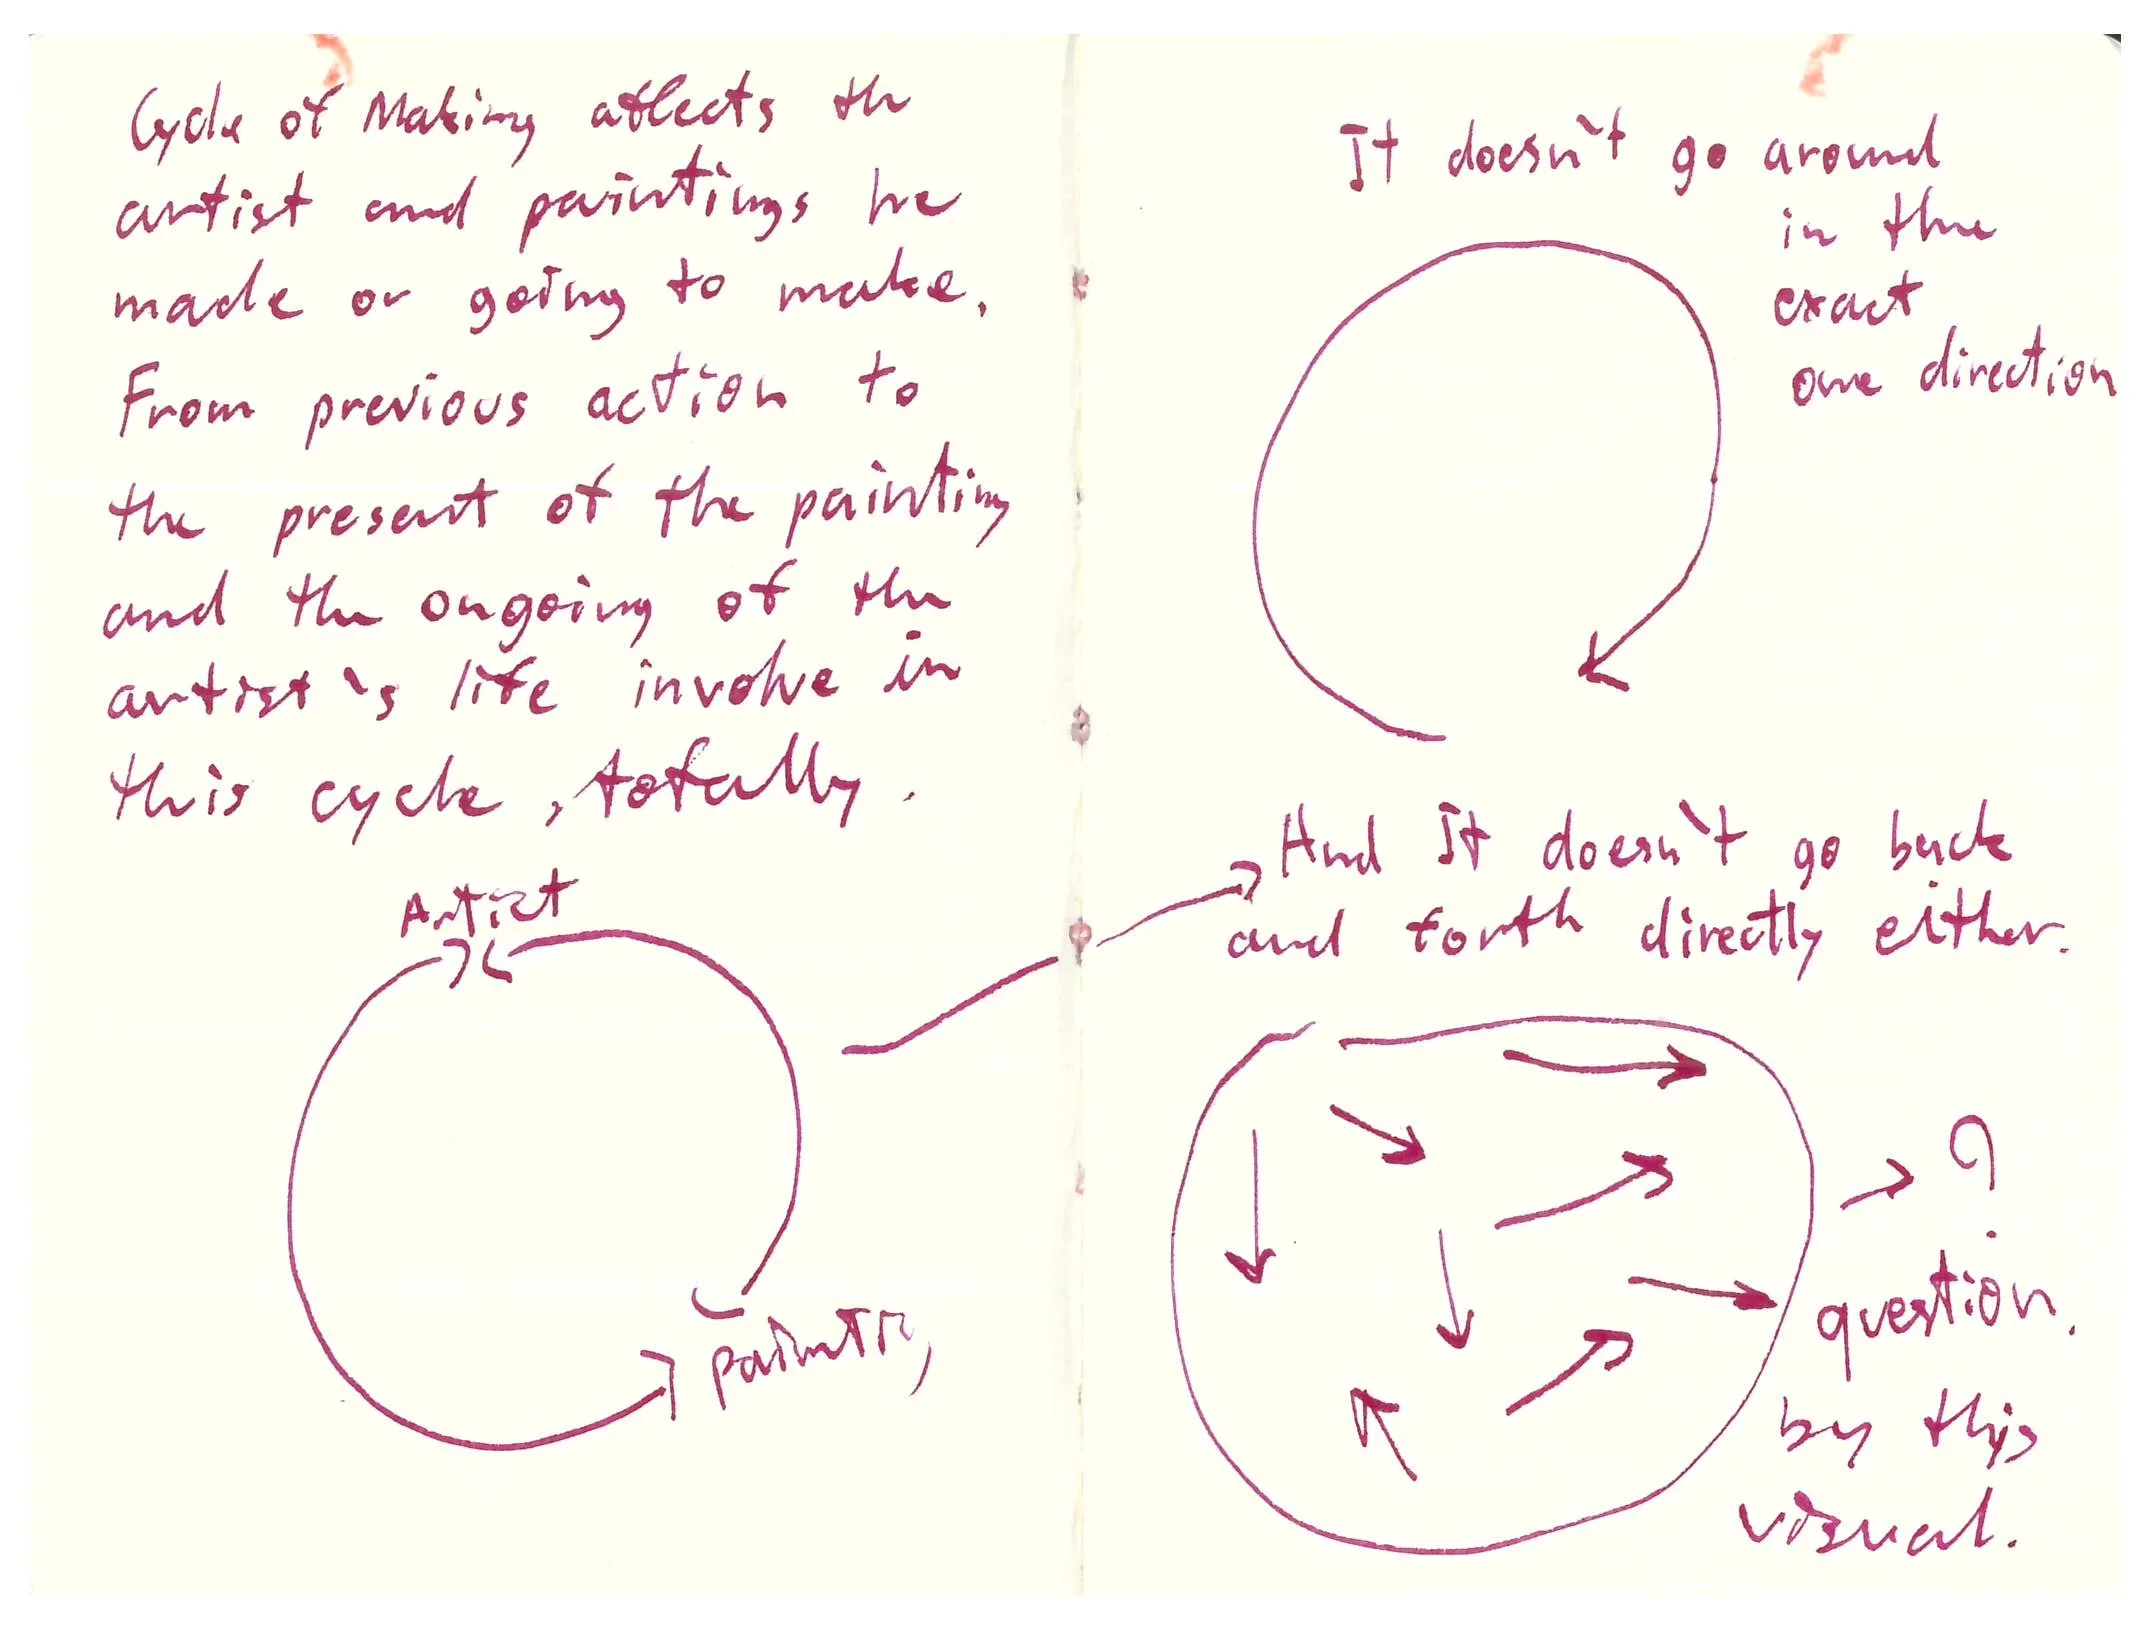 Cycle of Making affects the
artist and paintings he
made or going to make.
From previous action to
the present of the painting
and the ongoing of the
artist's life involve in
this cycle, totally.
Artist
painting
It doesn't go around
in the
exact
one direction
And It doesn't go back
and forth directly either.
?
question.
by this
visual.